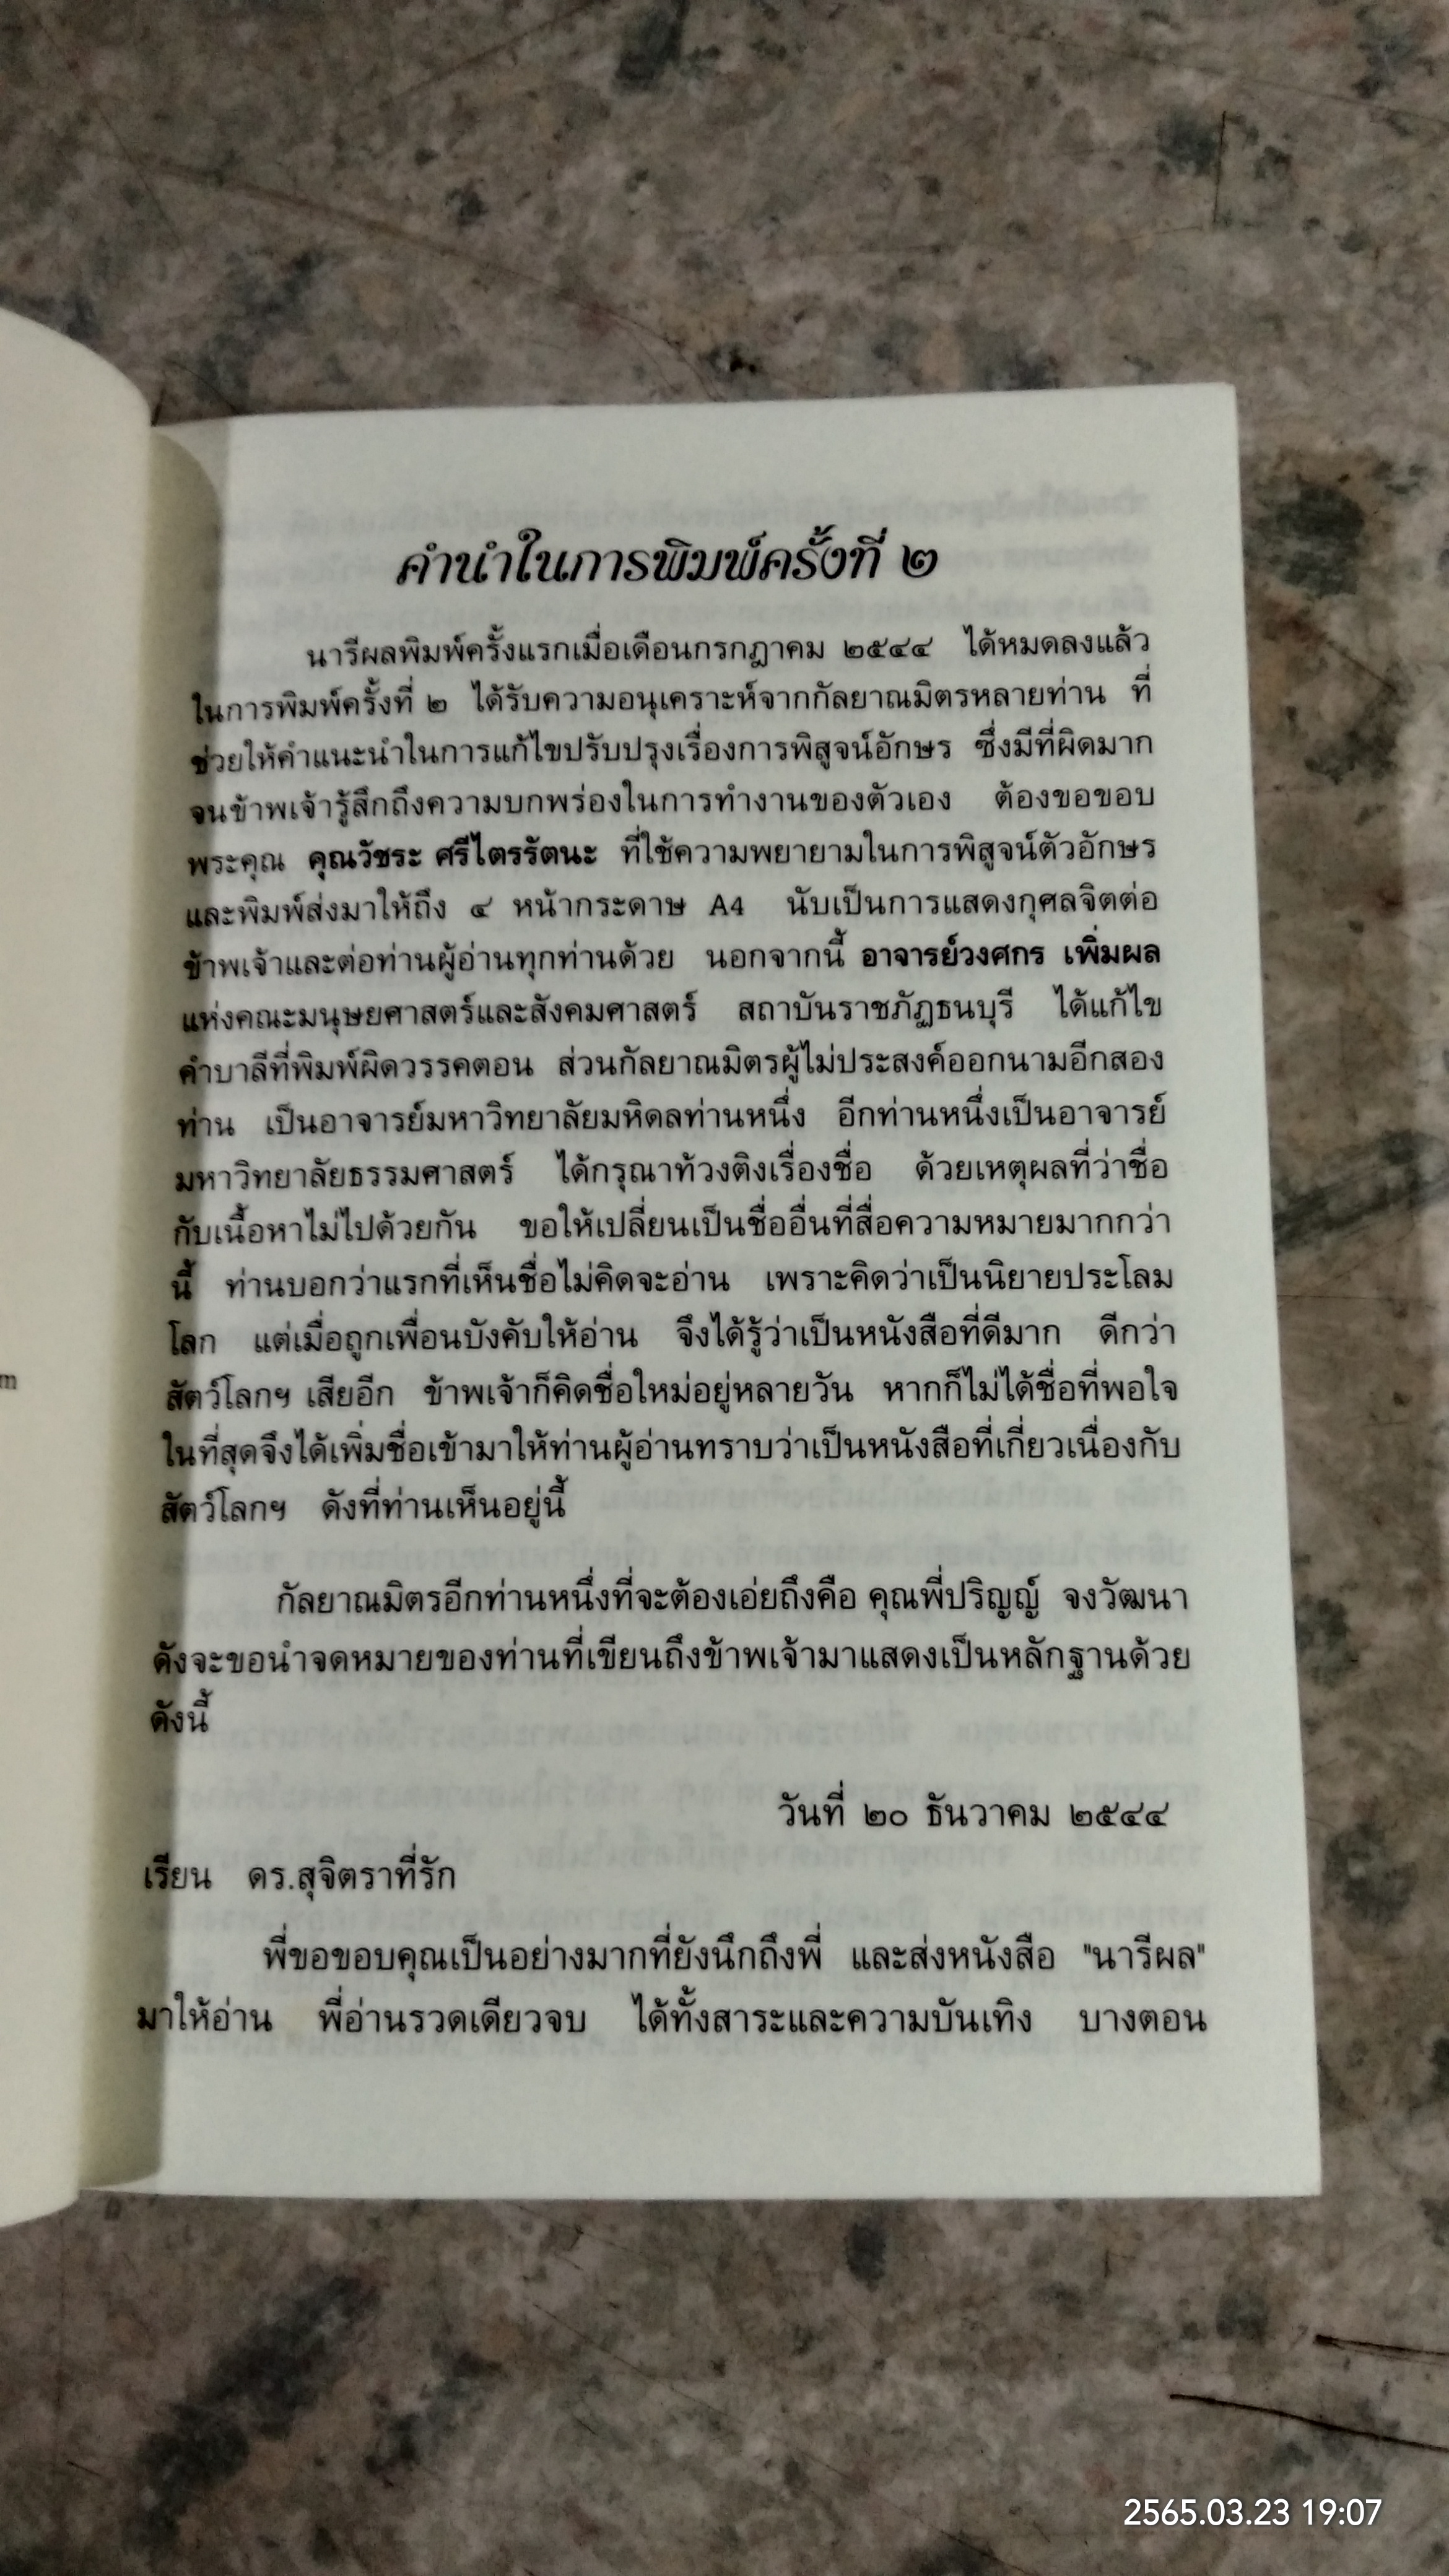 คำนำในการพิมพ์ครั้งที่ ๒
นารีผลพิมพ์ครั้งแรกเมื่อเดือนกรกฎาคม ๒๕๔๔ ได้หมดลงแล้ว
ในการพิมพ์ครั้งที่ ๒ ได้รับความอนุเคราะห์จากกัลยาณมิตรหลายท่าน ที่
ช่วยให้คำแนะนำในการแก้ไขปรับปรุงเรื่องการพิสูจน์อักษร ซึ่งมีที่ผิดมาก
จนข้าพเจ้ารู้สึกถึงความบกพร่องในการทำงานของตัวเอง ต้องขอขอบ
พระคุณ คุณวัชระ ศรีไตรรัตนะ ที่ใช้ความพยายามในการพิสูจน์ตัวอักษร
และพิมพ์ส่งมาให้ถึง ๔ หน้ากระดาษ A4 นับเป็นการแสดงกุศลจิตต่อ
ข้าพเจ้าและต่อท่านผู้อ่านทุกท่านด้วย นอกจากนี้ อาจารย์วงศกร เพิ่มผล
แห่งคณะมนุษยศาสตร์และสังคมศาสตร์ สถาบันราชภัฏธนบุรี ได้แก้ไข
คำบาลีที่พิมพ์ผิดวรรคตอน ส่วนกัลยาณมิตรผู้ไม่ประสงค์ออกนามอีกสอง
ท่าน เป็นอาจารย์มหาวิทยาลัยมหิดลท่านหนึ่ง อีกท่านหนึ่งเป็นอาจารย์
มหาวิทยาลัยธรรมศาสตร์ ได้กรุณาท้วงติงเรื่องชื่อ ด้วยเหตุผลที่ว่าชื่อ
กับเนื้อหาไม่ไปด้วยกัน ขอให้เปลี่ยนเป็นชื่ออื่นที่สื่อความหมายมากกว่า
นี้ ท่านบอกว่าแรกที่เห็นชื่อไม่คิดจะอ่าน เพราะคิดว่าเป็นนิยายประโลม
โลก แต่เมื่อถูกเพื่อนบังคับให้อ่าน จึงได้รู้ว่าเป็นหนังสือที่ดีมาก ดีกว่า
สัตว์โลกฯ เสียอีก ข้าพเจ้าก็คิดชื่อใหม่อยู่หลายวัน หากก็ไม่ได้ชื่อที่พอใจ
ในที่สุดจึงได้เพิ่มชื่อเข้ามาให้ท่านผู้อ่านทราบว่าเป็นหนังสือที่เกี่ยวเนื่องกับ
สัตว์โลกฯ ดังที่ท่านเห็นอยู่นี้
กัลยาณมิตรอีกท่านหนึ่งที่จะต้องเอ่ยถึงคือ คุณพี่ปริญญ์ จงวัฒนา
ดังจะขอนำจดหมายของท่านที่เขียนถึงข้าพเจ้ามาแสดงเป็นหลักฐานด้วย
ดังนี้
วันที่ ๒๐ ธันวาคม ๒๕๔๔
เรียน ดร.สุจิตราที่รัก
พี่ขอขอบคุณเป็นอย่างมากที่ยังนึกถึงพี่ และส่งหนังสือ "นารีผล"
มาให้อ่าน พี่อ่านรวดเดียวจบ ได้ทั้งสาระและความบันเทิง บางตอน
2565.03.23 19:07